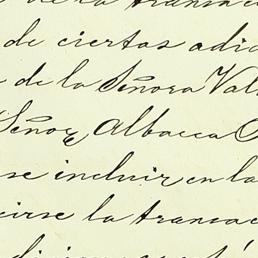 de la transac
de ciertas adic
de la Señora Val
Señor Albacea
se incluir en la
cirse la transac